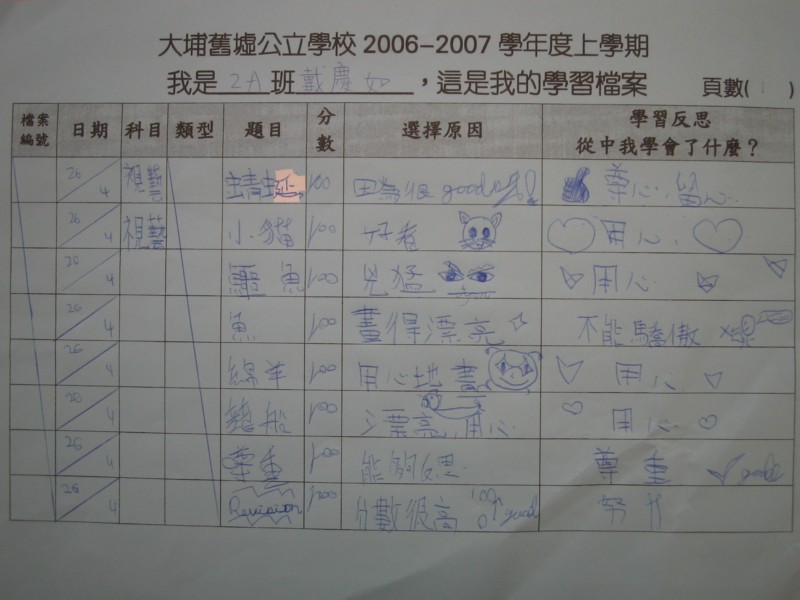 大埔舊墟公立學校 2006-2007 學年度上學期
我是 2A 班 戴慶如 ，這是我的學習檔案 頁數( 1 )
檔案編號 日期 科目 類型 題目 分數 選擇原因 學習反思 從中我學會了什麼？
26/4 視藝 蜻蜓 100 因為很 good 專心 留心
26/4 視藝 小貓 100 好看 用心
20/4 鱷魚 100 兇猛 用心
26/4 魚 100 畫得漂亮 不能驕傲
26/4 綿羊 100 用心地畫 用心
20/4 船 100 漂亮 用心 用心
26/4 尊重 100 能夠反思 尊重 good
26/4 Revision 100 分數很高 100 good 努力